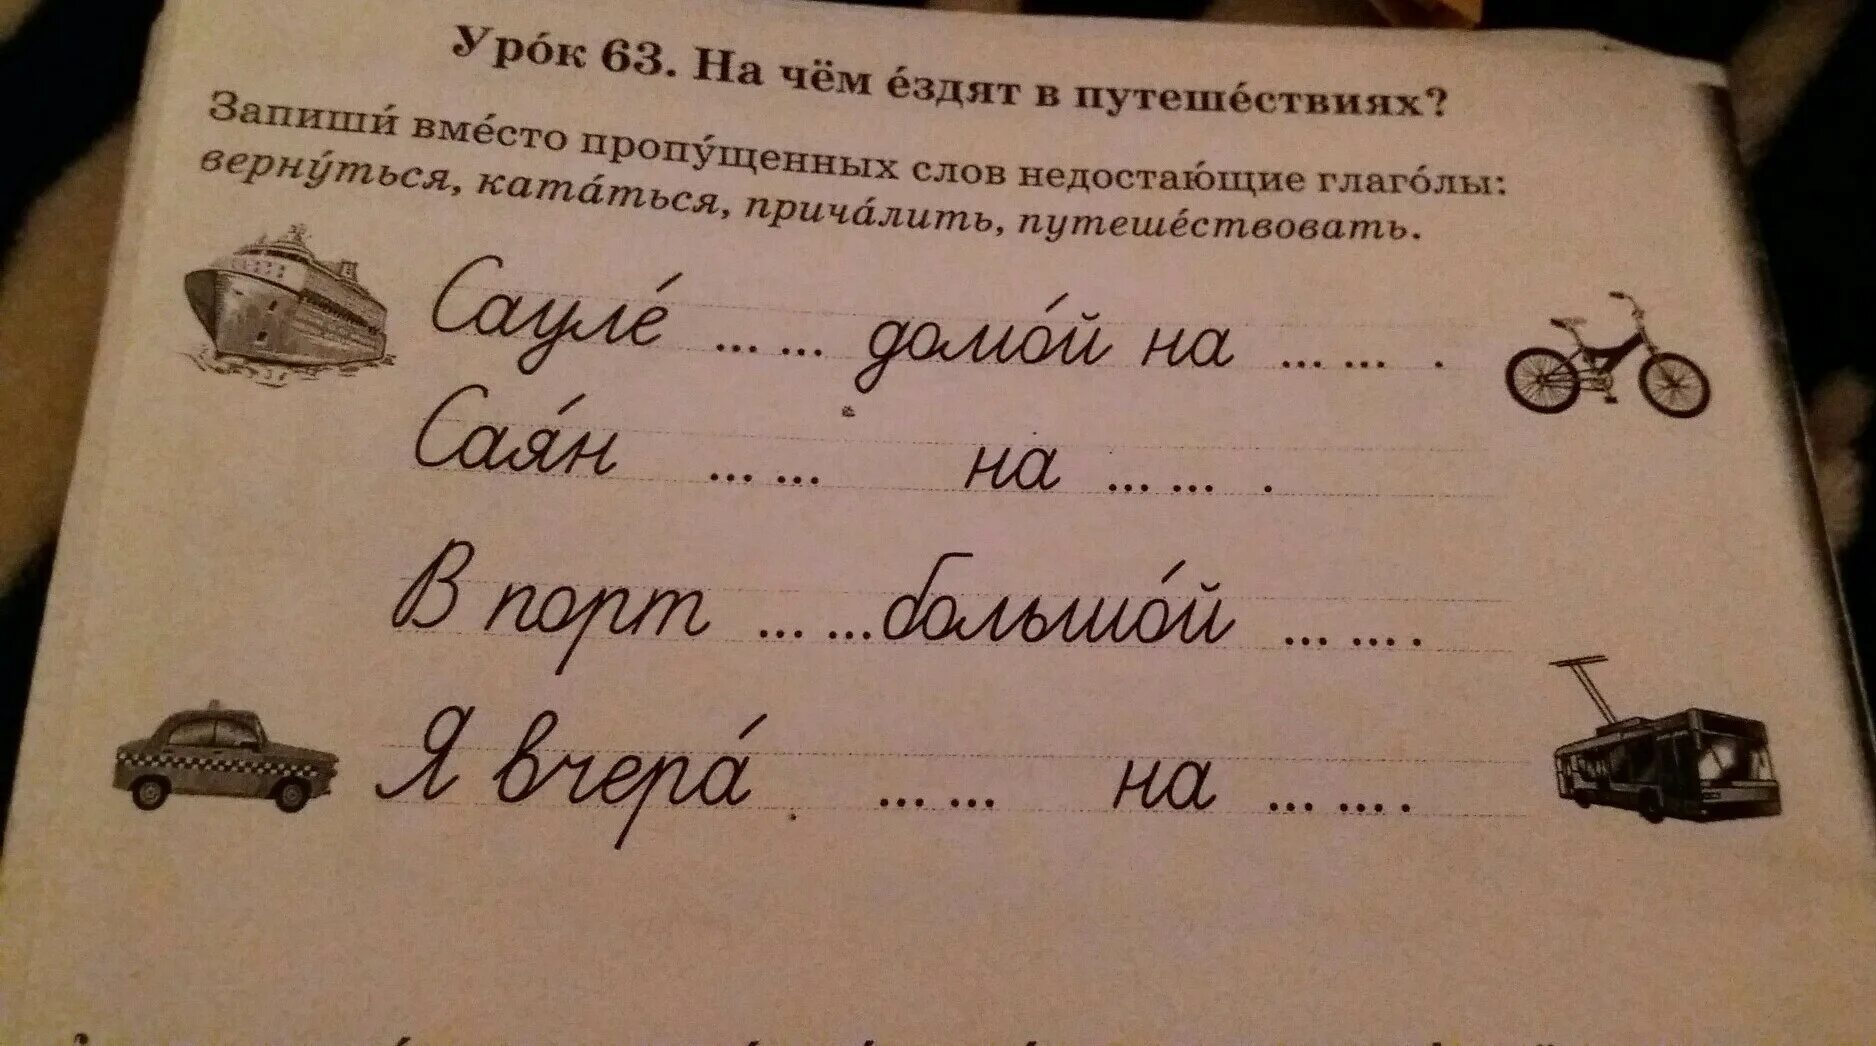 Уро́к 63. На чём е́здят в путеше́ствиях?
Запиши́ вме́сто пропу́щенных слов недостаю́щие глаго́лы:
верну́ться, ката́ться, прича́лить, путеше́ствовать.
Сауле́ ... ... домо́й на ... ... .
Сая́н ... ... на ... ... .
В порт ... ... большо́й ... ... .
Я вчера́ ... ... на ... ... .